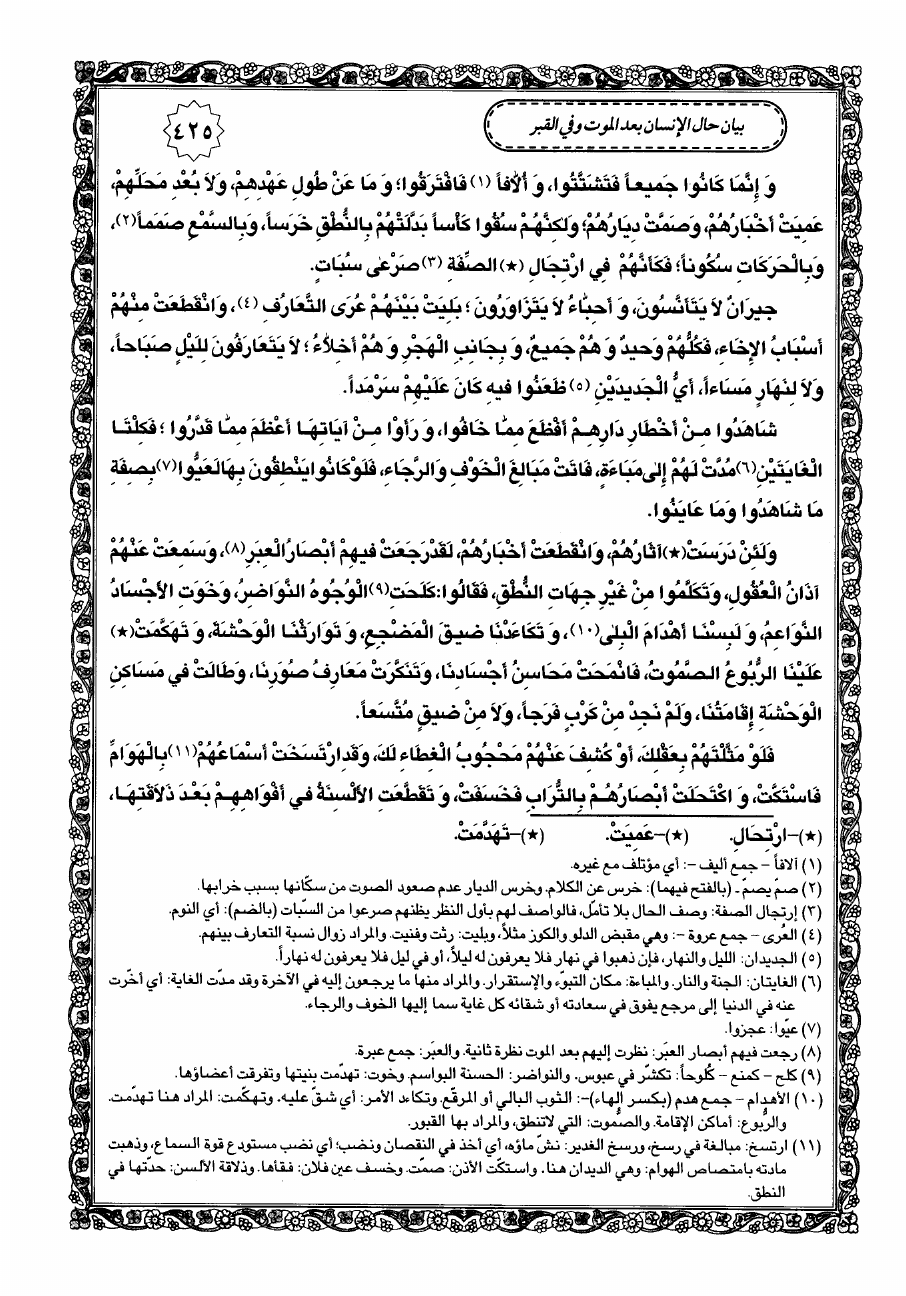 بيان حال الإنسان بعد الموت وفي القبر
٤٢٥
وَ إِنَّمَا كَانُوا جَميعاً فَتَشَتَّتُوا، وَ أُلاَّفاً (١) فَافْتَرَقُوا؛ وَ مَا عَنْ طُولِ عَهْدِهِمْ، وَلاَ بُعْدِ مَحَلِّهِمْ،
عَمِيَتْ أَخْبَارُهُمْ، وَصَمَّتْ دِيَارُهُمْ؛ وَلكِنَّهُمْ سُقُوا كَأْساً بَدَّلَتْهُمْ بِالنُّطْقِ خَرَساً، وَبِالسَّمْعِ صَمَماً (٢)،
وَبِالْحَرَكَاتِ سُكُوناً؛ فَكَأَنَّهُمْ في ارْتِجَالِ (★) الصِّفَةِ (٣) صَرْعٰى سُبَاتٍ.
جيرَانٌ لاَ يَتَأَنَّسُونَ، وَ أَحِبَّاءُ لاَ يَتَزَاوَرُونَ؛ بَلِيَتْ بَيْنَهُمْ عُرَى التَّعَارُفِ (٤)، وَانْقَطَعَتْ مِنْهُمْ
أَسْبَابُ الإِخَاءِ، فَكُلُّهُمْ وَحيدٌ وَ هُمْ جَميعٌ، وَ بِجَانِبِ الْهَجْرِ وَ هُمْ أَخِلاَّءُ؛ لاَ يَتَعَارَفُونَ لِلَيْلٍ صَبَاحاً،
وَلاَ لِنَهَارٍ مَسَاءاً، أَيُّ الْجَديدَيْنِ (٥) ظَعَنُوا فيهِ كَانَ عَلَيْهِمْ سَرْمَداً.
شَاهَدُوا مِنْ أَخْطَارِ دَارِهِمْ أَفْظَعَ مِمَّا خَافُوا، وَ رَأَوْا مِنْ آيَاتِهَا أَعْظَمَ مِمَّا قَدَّرُوا؛ فَكِلْتَا
الْغَايَتَيْنِ (٦) مُدَّتْ لَهُمْ إِلٰى مَبَاءَةٍ، فَاتَتْ مَبَالِغَ الْخَوْفِ وَالرَّجَاءِ، فَلَوْ كَانُوا يَنْطِقُونَ بِهَا لَعَيُّوا (٧) بِصِفَةِ
مَا شَاهَدُوا وَمَا عَايَنُوا.
وَلَئِنْ دَرَسَتْ (★) آثَارُهُمْ، وَانْقَطَعَتْ أَخْبَارُهُمْ، لَقَدْ رَجَعَتْ فيهِمْ أَبْصَارُ الْعِبَرِ (٨)، وَسَمِعَتْ عَنْهُمْ
آذَانُ الْعُقُولِ، وَتَكَلَّمُوا مِنْ غَيْرِ جِهَاتِ النُّطْقِ، فَقَالُوا: كَلَحَتِ (٩) الْوُجُوهُ النَّوَاضِرُ، وَخَوَتِ الأَجْسَادُ
النَّوَاعِمُ، وَ لَبِسْنَا أَهْدَامَ الْبِلٰى (١٠)، وَ تَكَاءَدَنَا ضيقُ الْمَضْجَعِ، وَ تَوَارَثْنَا الْوَحْشَةَ، وَ تَهَكَّمَتْ (★)
عَلَيْنَا الرُّبُوعُ الصَّمُوتُ، فَانْمَحَتْ مَحَاسِنُ أَجْسَادِنَا، وَتَنَكَّرَتْ مَعَارِفُ صُوَرِنَا، وَطَالَتْ في مَسَاكِنِ
الْوَحْشَةِ إِقَامَتُنَا، وَلَمْ نَجِدْ مِنْ كَرْبٍ فَرَجاً، وَلاَ مِنْ ضيقٍ مُتَّسَعاً.
فَلَوْ مَثَّلْتَهُمْ بِعَقْلِكَ، أَوْ كُشِفَ عَنْهُمْ مَحْجُوبُ الْغِطَاءِ لَكَ، وَقَدِ ارْتَسَخَتْ أَسْمَاعُهُمْ (١١) بِالْهَوَامِّ
فَاسْتَكَّتْ، وَ اكْتَحَلَتْ أَبْصَارُهُمْ بِالتُّرَابِ فَخَسَفَتْ، وَ تَقَطَّعَتِ الأَلْسِنَةُ في أَفْوَاهِهِمْ بَعْدَ ذَلاَقَتِهَا،
(★)-ارْتِحَالِ. (★)-عَمِيَتْ. (★)-تَهَدَّمَتْ.
(١) آلافاً – جمع أليف –: أي مؤتلف مع غيره.
(٢) صمّ يصمّ - (بالفتح فيهما): خرس عن الكلام. وخرس الديار عدم صعود الصوت من سكّانها بسبب خرابها.
(٣) إرتجال الصفة: وصف الحال بلا تأمّل، فالواصف لهم بأول النظر يظنهم صرعوا من السّبات (بالضم): أي النوم.
(٤) العُرى – جمع عروة –: وهي مقبض الدلو والكوز مثلاً، وبليت: رثت وفنيت. والمراد زوال نسبة التعارف بينهم.
(٥) الجديدان: الليل والنهار، فإن ذهبوا في نهار فلا يعرفون له ليلاً، أو في ليل فلا يعرفون له نهاراً.
(٦) الغايتان: الجنة والنار. والمباءة: مكان التبوّء والإستقرار. والمراد منها ما يرجعون إليه في الآخرة وقد مدّت الغاية: أي أخّرت
عنه في الدنيا إلى مرجع يفوق في سعادته أو شقائه كل غاية سما إليها الخوف والرجاء.
(٧) عيّوا: عجزوا.
(٨) رجعت فيهم أبصار العبَر: نظرت إليهم بعد الموت نظرة ثانية. والعبَر: جمع عبرة.
(٩) كلح – كمنع – كُلوحاً: تكشّر في عبوس. والنواضر: الحسنة البواسم. وخوت: تهدّمت بنيتها وتفرقت أعضاؤها.
(١٠) الأهدام – جمع هدم (بكسر الهاء)–: الثوب البالي أو المرقّع. وتكاءد الأمر: أي شقّ عليه. وتهكّمت: المراد هنا تهدّمت.
والرُّبوع: أماكن الإقامة. والصمُوت: التي لاتنطق، والمراد بها القبور.
(١١) ارتسخ: مبالغة في رسخ، ورسخ الغدير: نشّ ماؤه، أي أخذ في النقصان ونضب؛ أي نضب مستودع قوة السماع، وذهبت
مادته بامتصاص الهوام: وهي الديدان هنا. واستكّت الأذن: صمّت. وخسف عين فلان: فقأها. وذلاقة الألسن: حدّتها في
النطق.